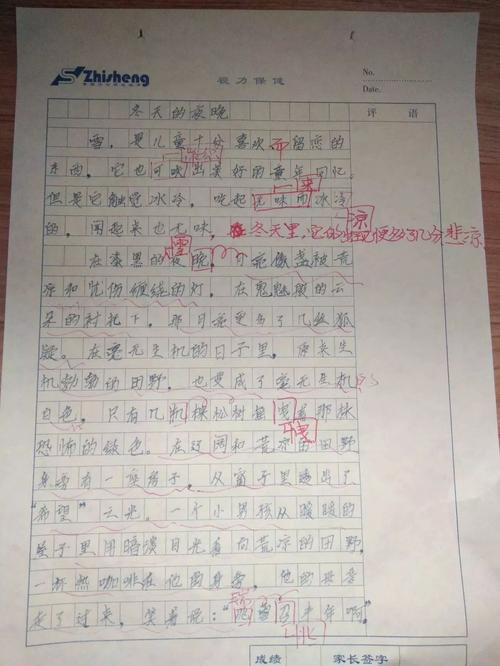 Zhisheng
视力保健
No.
Date.
评 语
冬天的夜晚
雪,是儿童十分喜欢而留恋的
东西。它也可 出美好的童年回忆。
但是它触觉冰冷,吃起 味而冰冷
的,闻起来也无味,冬天里,它的 便多了几分悲凉
凉
在漆黑的夜晚,
雪
原和忧伤缠绕的灯。在鬼魅般的云
朵的衬托下。那月亮更多了几丝狐
疑。在毫无生机的日子里。原来生
机勃勃的田野。也变成了毫无生机
白色。只有几 棵松树 着那株
恐怖的绿色。在辽阔和荒凉的田野
身旁有一座房子。从窗子里透出了
“希望”之光。一个小男孩从暖暖的
房子里用暗淡目光看向荒凉的田野。
一杯热咖啡在他的身旁,他的母亲
走了过来,笑着说:“ 雪 丰年啊。”
瑞
兆
成绩
家长签字